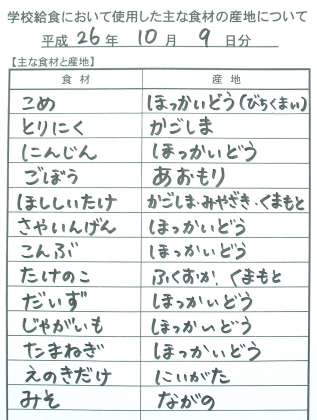 学校給食において使用した主な食材の産地について
平成 26 年 10 月 9 日分
【主な食材と産地】
食材 産地
こめ ほっかいどう(びちくまい)
とりにく かごしま
にんじん ほっかいどう
ごぼう あおもり
ほししいたけ かごしま・みやざき・くまもと
さやいんげん ほっかいどう
こんぶ ほっかいどう
たけのこ ふくおか、くまもと
だいず ほっかいどう
じゃがいも ほっかいどう
たまねぎ ほっかいどう
えのきだけ にいがた
みそ ながの